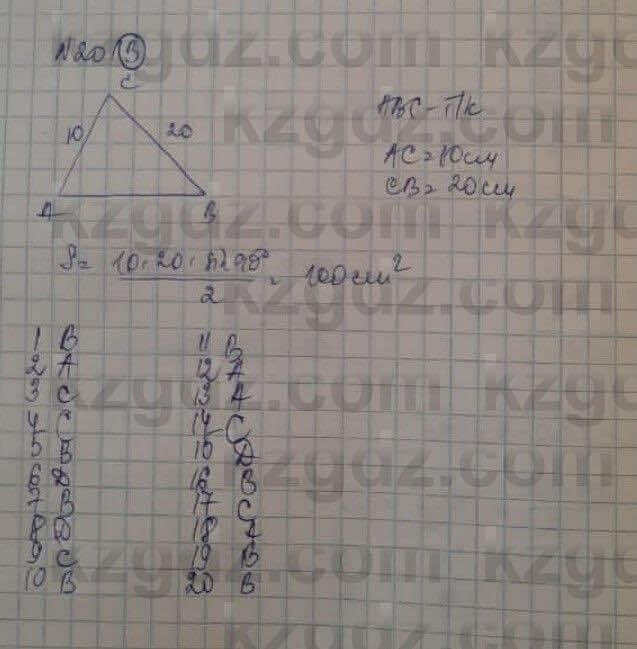 N20 B
C
10 20
A B
ABC - П/к
AC = 10 см
CB = 20 см
S = 10 · 20 · sin 90° / 2 = 100 см²
1 B
2 A
3 C
4 C
5 B
6 D
7 B
8 D
9 C
10 B
11 B
12 A
13 A
14 C
15 D
16 B
17 C
18 A
19 B
20 B
kzgdz.com